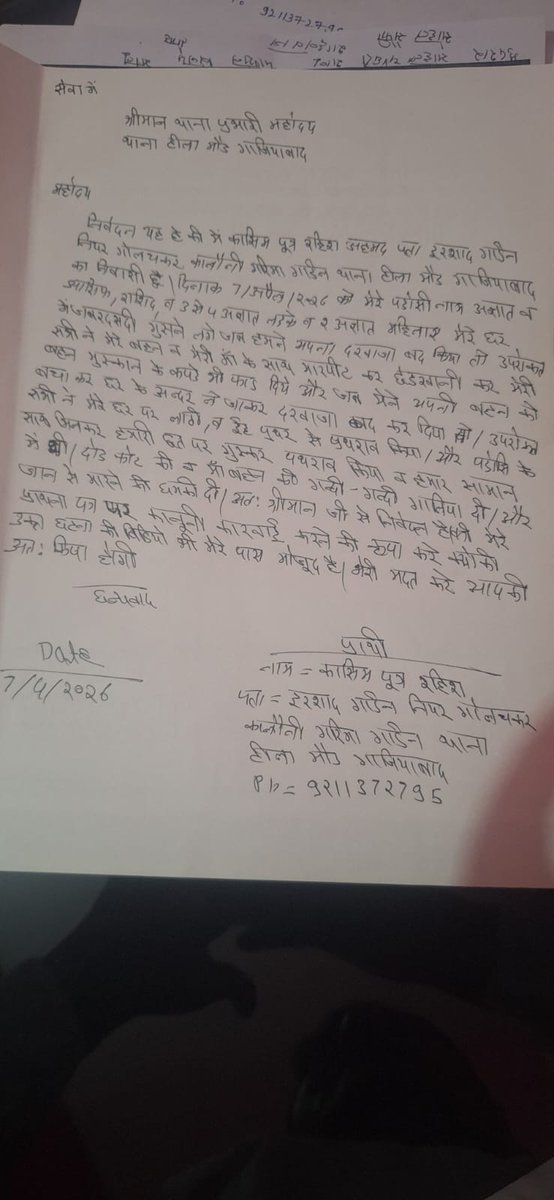 92113727९५
सेवा में
श्रीमान थाना प्रभारी महोदय
थाना टीला मौड गाजियाबाद
महोदय
निवेदन यह है की में कासिम पुत्र रहिश अहमद पता इरशाद गार्डन
नियर गोलचक्कर कालौनी गरिमा गार्डन थाना टीला मौड गाजियाबाद
का निवासी है। दिनाक 7/अप्रैल/२०२६ को मेरे पडोसी नाम अज्ञात व
आशिफ, राशिद व 3 से ५ अज्ञात लडके व २ अज्ञात महिलाए मेरे घर
में जबरदस्ती घुसने लगे जब हमने अपना दरवाजा बंद किया तो उपरोक्त
सभी ने मेरे बहन व मेरी माँ के साथ मारपीट कर छेडखानी कर मेरी
बहन मुस्कान के कपडे भी फाड दिये और जब मेने अपनी बहन को
बचा कर घर के अन्दर ले जाकर दरवाजा बंद कर दिया तो/उपरोक्त
सभी ने मेरे घर पर लाठी, व ईट पत्थर से पथराव किया/और पडोसि के
साथ मिलकर हमारी छत पर घुसकर पथराव किया व हमारे सामान
में भी/तोड फोट की व माँ बहन की गन्दी-गन्दी गालिया दी/और
जान से मारने की धमकी दी/अत: श्रीमान जी से निवेदन है की मेरे
प्राथना पत्र पर कानूनी कारवाई करने की कृपा करे क्योकी
उक्त घटना की विडियो भी मेरे पास मोजूद है/मेरी मदत करे आपकी
अत: क्रिपा होगी
धन्यवाद
Date
7/4/2026
प्राथी
नाम = कासिम पुत्र रहिश
पता = इरशाद गार्डन नियर गोलचक्कर
कालौनी गरिमा गार्डन थाना
टीला मौड गाजियाबाद
Ph = 9211372795